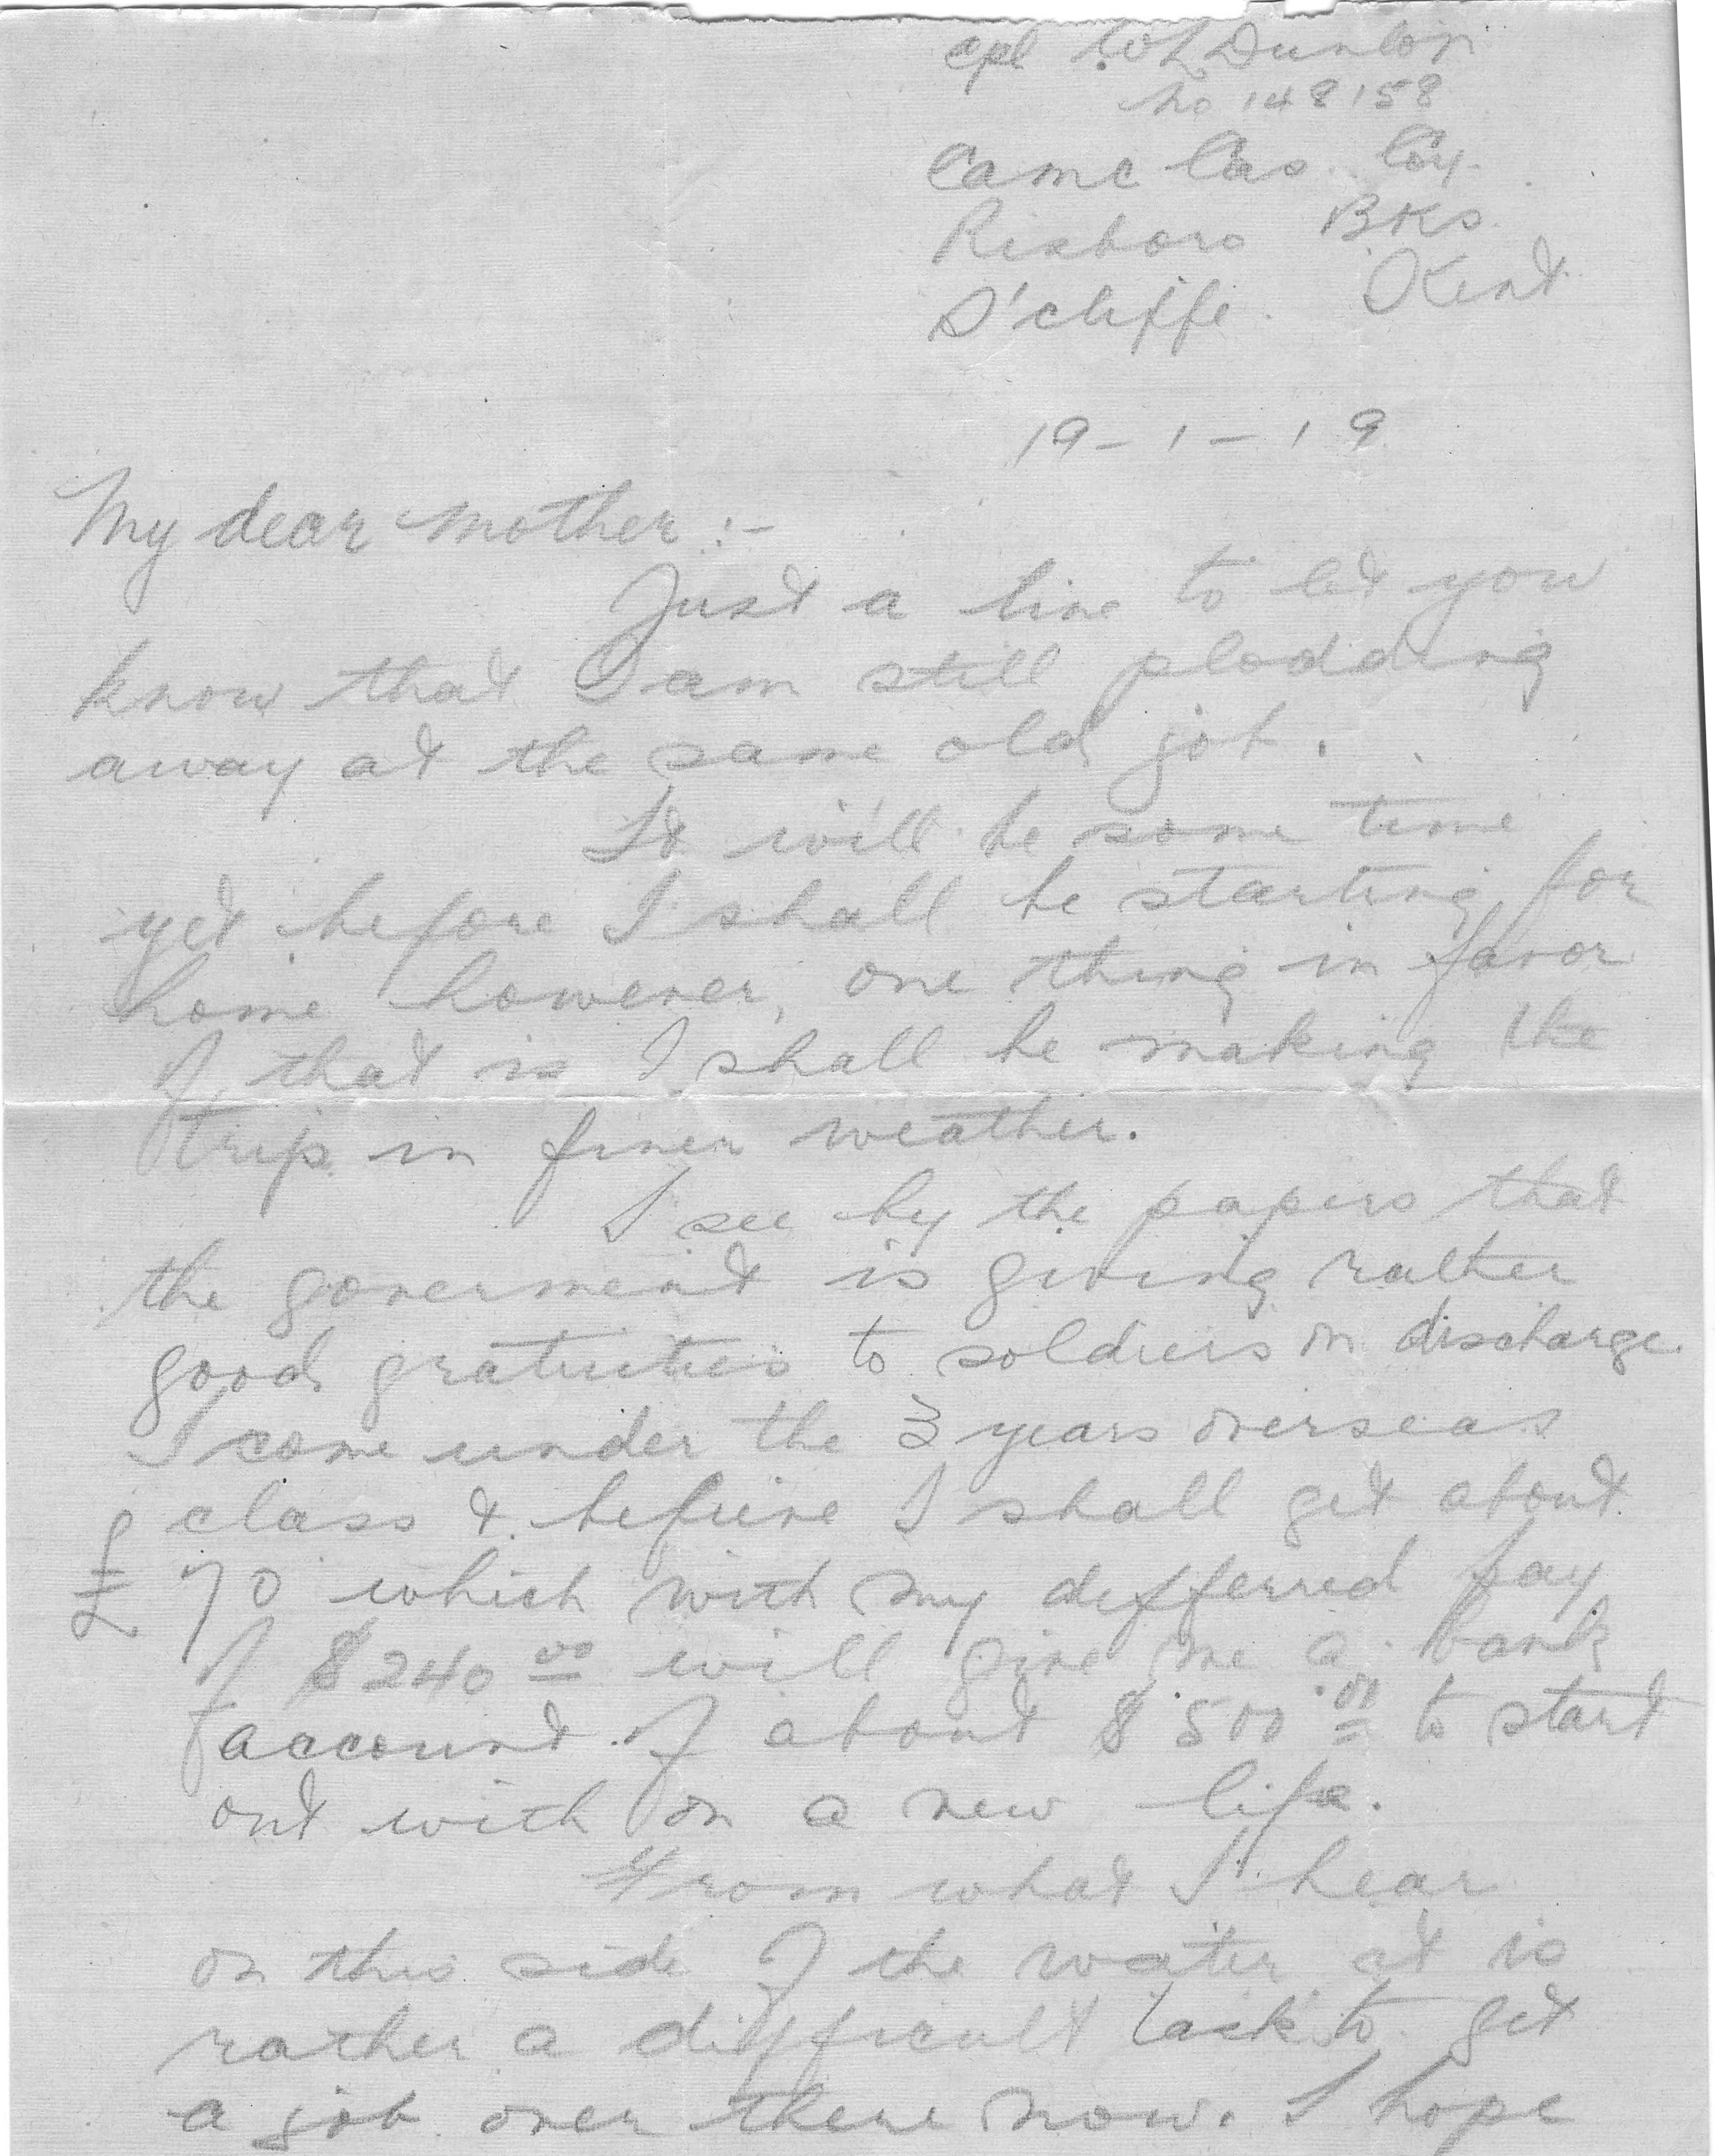 Cpl W L Dunlop
No 148158
Camc Cas. Coy.
Risboro BKs.
S'cliffe. Kent.
19-1-19
My dear mother :-
Just a line to let you
know that I am still plodding
away at the same old job.
It will be some time
yet before I shall be starting for
home however, one thing in favor
of that is I shall be making the
trip in finer weather.
I see by the papers that
the goverment is giving rather
good gratuities to soldiers on discharge.
I come under the 3 years overseas
class & I shall get about
£ 70 which with my defferred pay
of $240 00 will give me a bank
account of about $500 00 to start
out with on a new life.
From what I hear
on this side of the water it is
rather a difficult task to get
a job over there now. I hope